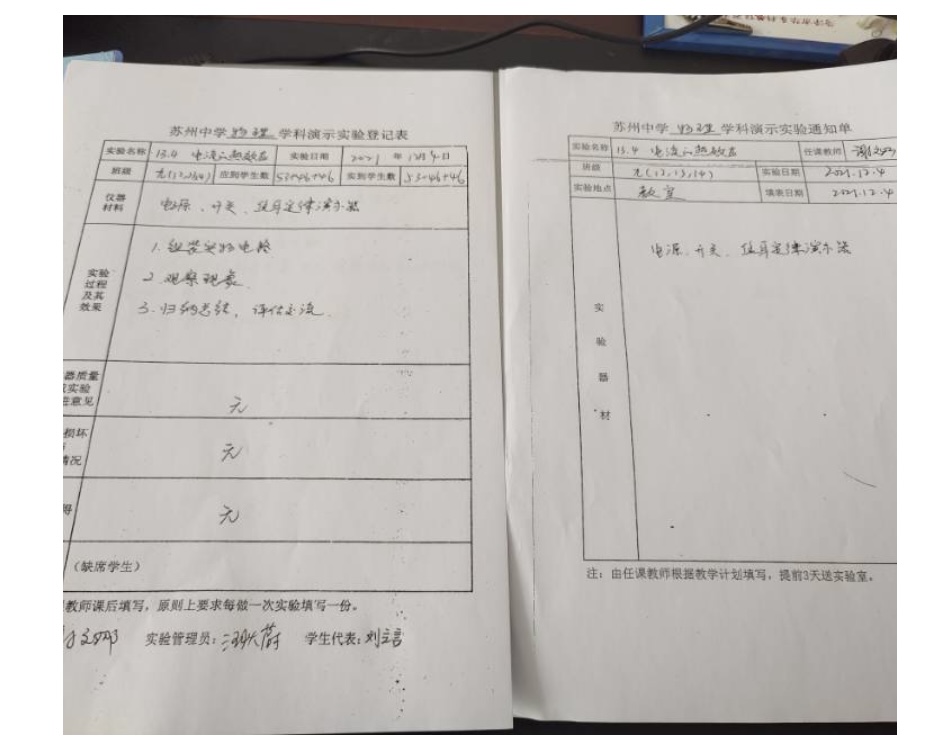 苏州中学 物理 学科演示实验登记表
实验名称 15.4 电流的热效应 实验日期 2021 年 12月4日
班级 应到学生数 53+46+46 实到学生数 53+46+46
仪器材料
电源、开关、焦耳定律演示器
实验过程及其效果
1. 组装实物电路
2. 观察现象
3. 归纳总结,评估交流
器质量
实验
意见
无
损坏
情况
无
无
(缺席学生)
教师课后填写,原则上要求每做一次实验填写一份。
实验管理员: 学生代表:
苏州中学 物理 学科演示实验通知单
实验名称 15.4 电流的热效应 任课教师
班级 (12,13,14) 实验日期 2021.12.4
实验地点 教室 填表日期 2021.12.4
实验器材
电源、开关、焦耳定律演示器
注:由任课教师根据教学计划填写,提前3天送实验室。